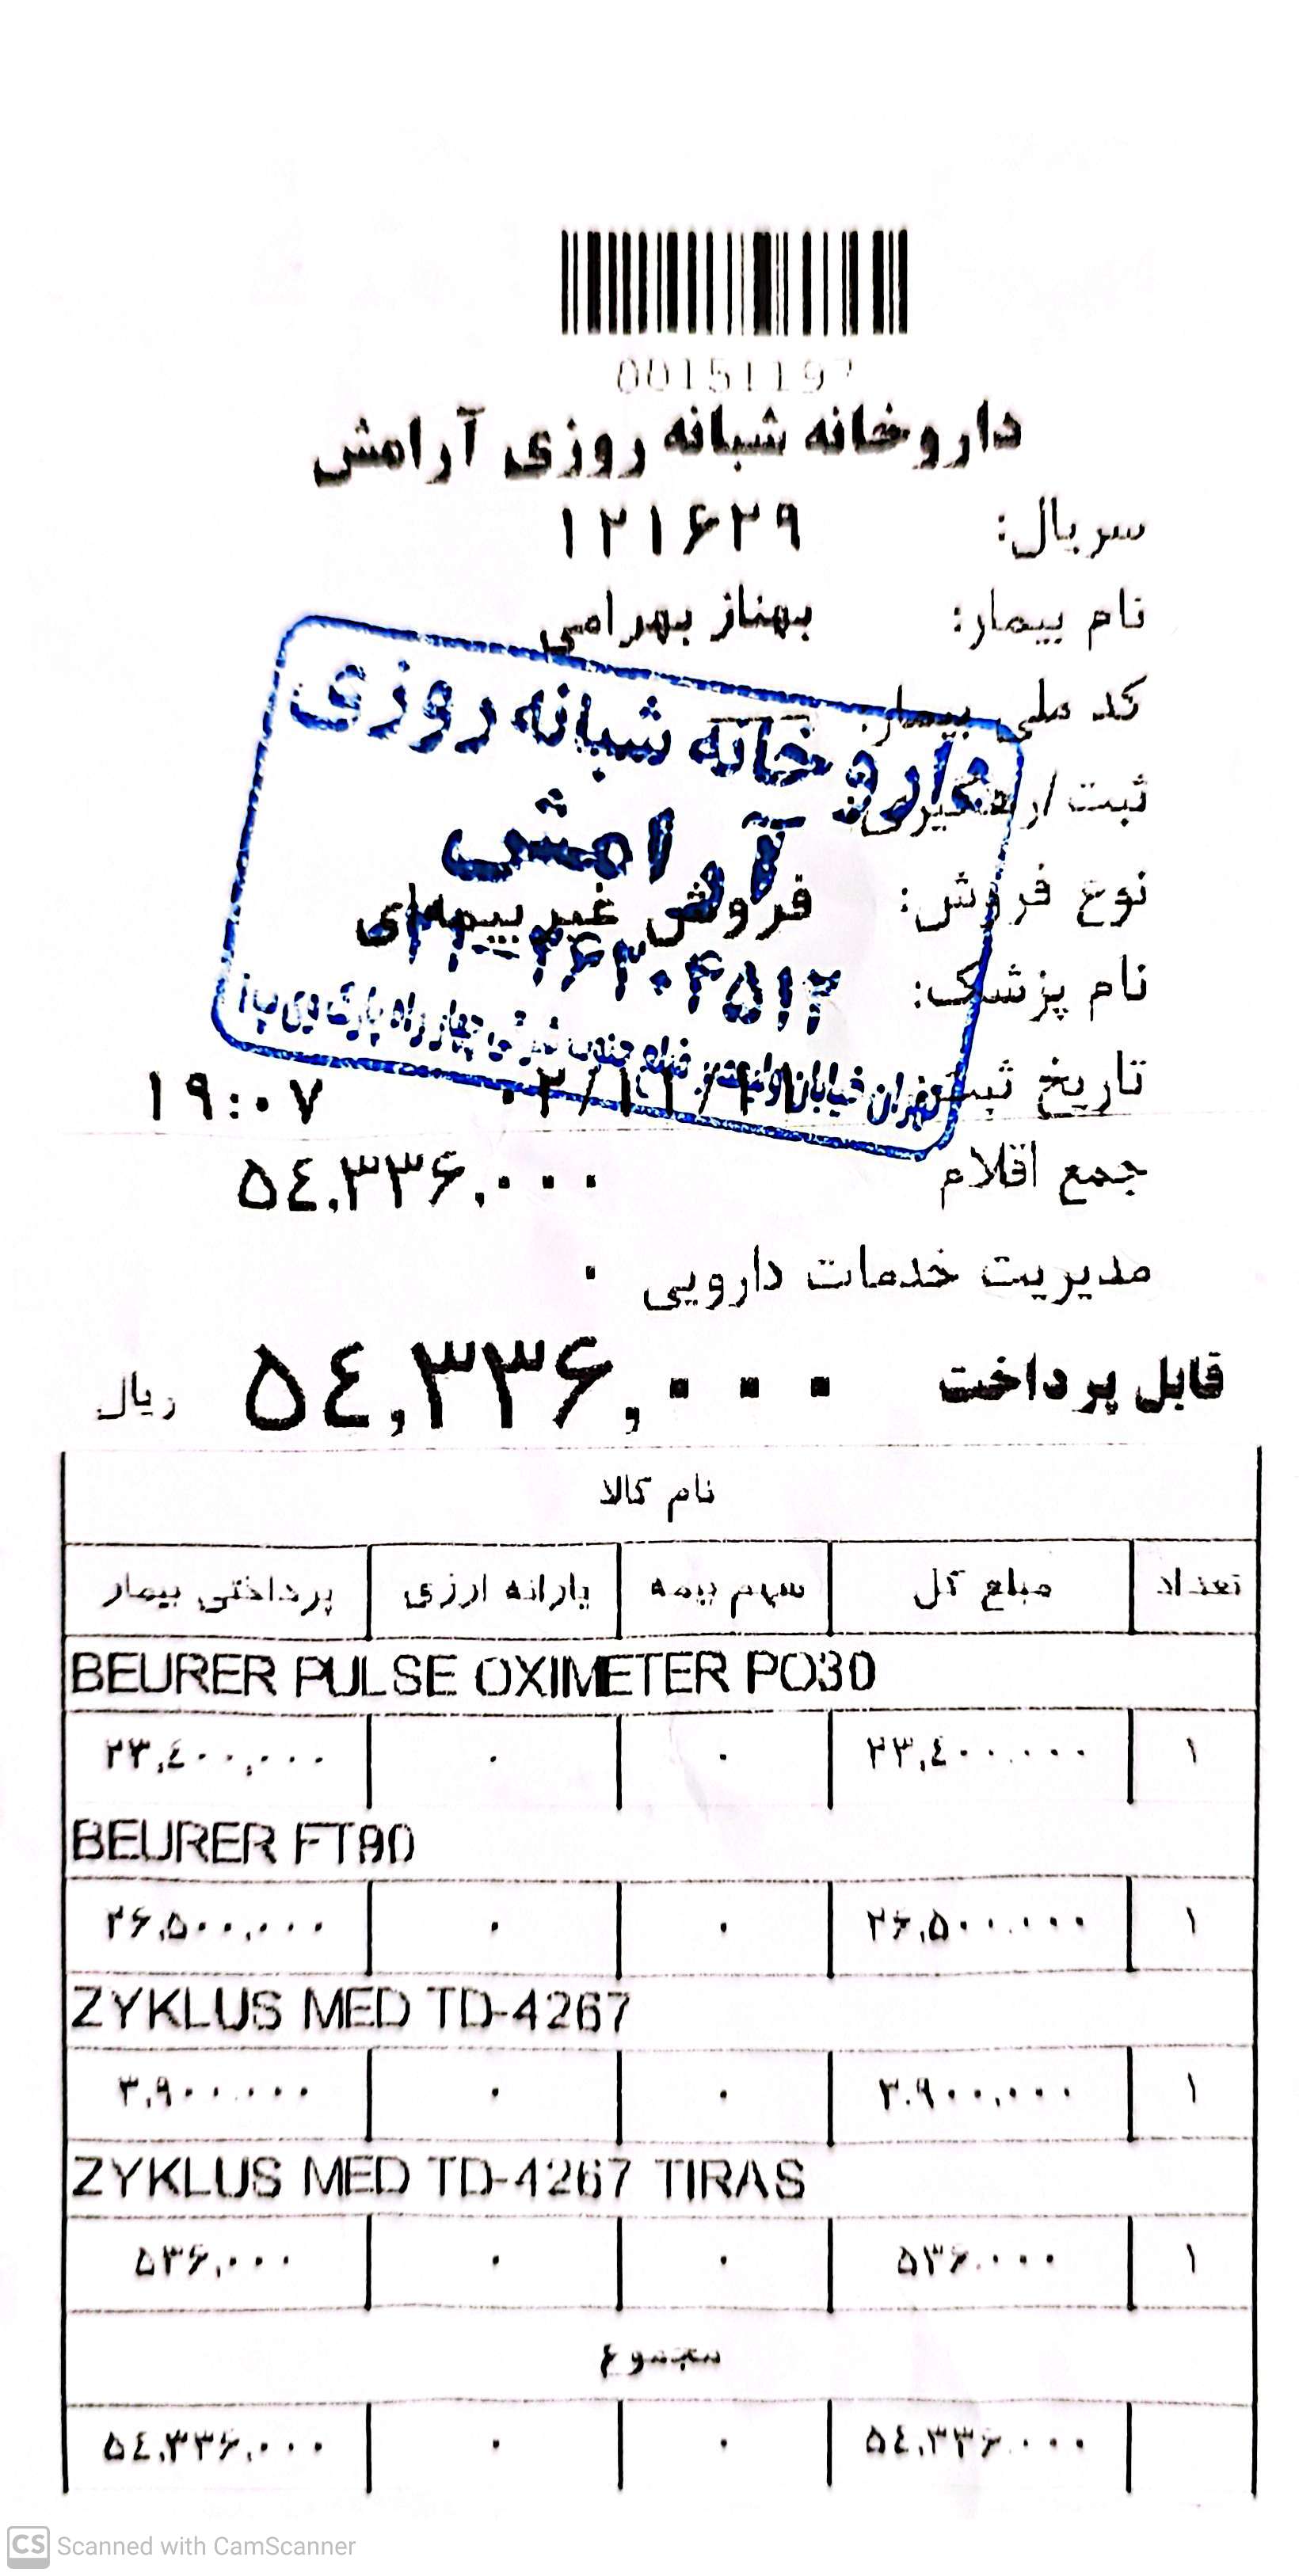 داروخانه شبانه روزی آرامش
سریال: ۱۲۱۶۲۹
نام بیمار: بهناز بهرامی
کد ملی بیمار:
ثبت/رهگیری:
نوع فروش: فروش غیر بیمه‌ای
نام پزشک:
تاریخ ثبت ۱۹:۰۷
داروخانه شبانه روزی
آرامش
جمع اقلام ۵۴,۳۳۶,۰۰۰
مدیریت خدمات دارویی ۰
قابل پرداخت ۵۴,۳۳۶,۰۰۰ ریال
نام کالا
تعداد مبلغ کل سهم بیمه یارانه ارزی پرداختی بیمار
BEURER PULSE OXIMETER PO30
۱ ۲۳,۴۰۰,۰۰۰ ۰ ۰ ۲۳,۴۰۰,۰۰۰
BEURER FT90
۱ ۲۶,۵۰۰,۰۰۰ ۰ ۰ ۲۶,۵۰۰,۰۰۰
ZYKLUS MED TD-4267
۱ ۳,۹۰۰,۰۰۰ ۰ ۰ ۳,۹۰۰,۰۰۰
ZYKLUS MED TD-4267 TIRAS
۱ ۵۳۶,۰۰۰ ۰ ۰ ۵۳۶,۰۰۰
مجموع
۵۴,۳۳۶,۰۰۰ ۰ ۰ ۵۴,۳۳۶,۰۰۰
CS Scanned with CamScanner